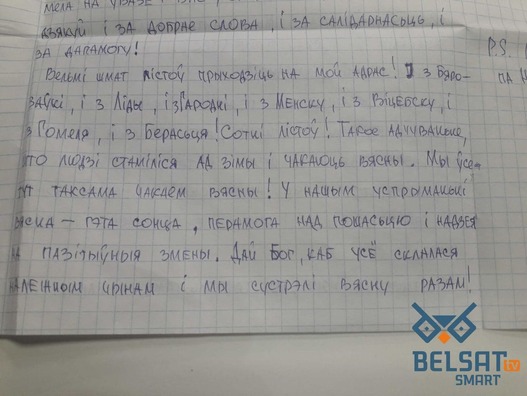 мела на ўвазе і
дзякуй і за добрае слова, і за салідарнасьць, і
за дапамогу!
P.S.
Вельмі шмат лістоў прыходзіць на мой адрас! І з Бяро-
заўкі, і з Ліды, і з Гародні, і з Менску, і з Віцебску, і
з Гомеля, і з Берасьця! Соткі лістоў! Такое адчуваньне,
што людзі стаміліся ад зімы і чакаюць вясны. Мы ўсе
тут таксама чакаем вясны! У нашым успрыманьні
вясна – гэта сонца, перамога над пошасьцю і надзея
на пазітыўныя змены. Дай Бог, каб усё склалася
належным чынам і мы сустрэлі вясну разам!
BELSAT tv
SMART